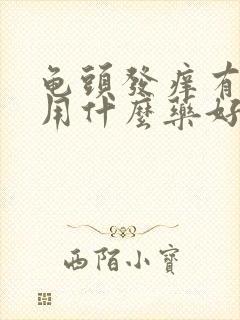 龟頭發痒有
用什麼藥好
西陌小寶